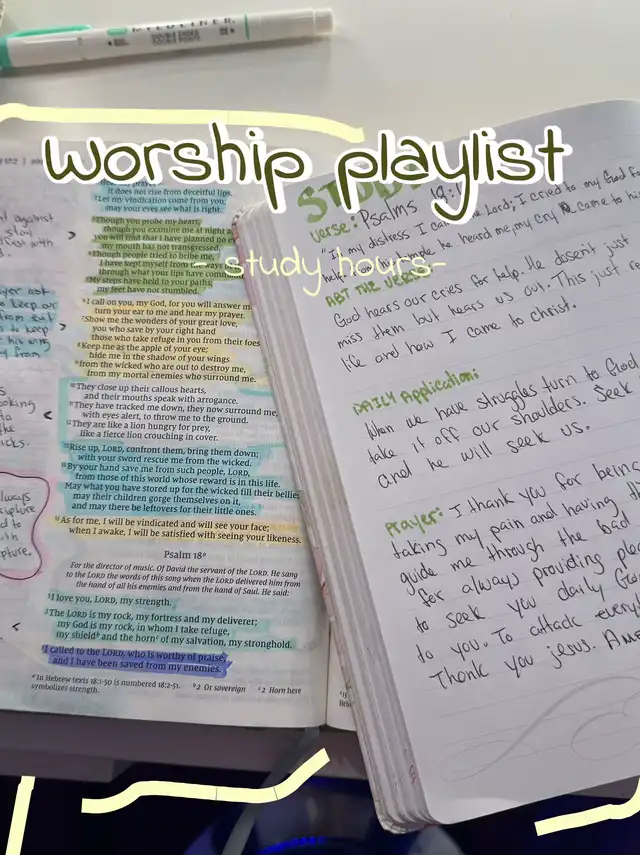 MILDLINER
DOUBLE SIDED
worship playlist
- study hours-
it does not rise from deceitful lips.
2 Let my vindication come from you;
may your eyes see what is right.
3 Though you probe my heart,
though you examine me at night
you will find that I have planned no
my mouth has not transgressed.
4 Though people tried to bribe me,
I have kept myself from
through what your lips have
5 My steps have held to your paths;
my feet have not stumbled.
6 I call on you, my God, for you will answer
turn your ear to me and hear my prayer.
7 Show me the wonders of your great love,
you who save by your right hand
those who take refuge in you from their foes
8 Keep me as the apple of your eye;
hide me in the shadow of your wings
9 from the wicked who are out to destroy me,
from my mortal enemies who surround me.
10 They close up their callous hearts,
and their mouths speak with arrogance.
11 They have tracked me down, they now surround me,
with eyes alert, to throw me to the ground.
12 They are like a lion hungry for prey,
like a fierce lion crouching in cover.
13 Rise up, LORD, confront them, bring them down;
with your sword rescue me from the wicked.
14 By your hand save me from such people, LORD,
from those of this world whose reward is in this life.
May what you have stored up for the wicked fill their bellies;
may their children gorge themselves on it,
and may there be leftovers for their little ones.
15 As for me, I will be vindicated and will see your face;
when I awake, I will be satisfied with seeing your likeness.
Psalm 18
For the director of music. Of David the servant of the LORD. He sang
to the LORD the words of this song when the LORD delivered him from
the hand of all his enemies and from the hand of Saul. He said:
1 I love you, LORD, my strength.
2 The LORD is my rock, my fortress and my deliverer;
my God is my rock, in whom I take refuge,
my shield b and the horn c of my salvation, my stronghold.
3 I called to the LORD, who is worthy of praise,
and I have been saved from my enemies.
a In Hebrew texts 18:1-50 is numbered 18:2-51. b 2 Or sovereign c 2 Horn here
symbolizes strength.
Verse: Psalms
"In my distress I Lord; I cried to my God
he heard me; my cry came to
ABT THE
God hears our cries for help. He doesent just
miss them but hears us out. This just
life and how I came to christ.
DAILY Application:
When we have struggles turn to God
take it off our shoulders. Seek
and he will seek us.
Prayer: I thank you for being
taking my pain and having
guide me through the bad
for always providing
to seek you daily
to you. To attack
Thank you jesus.